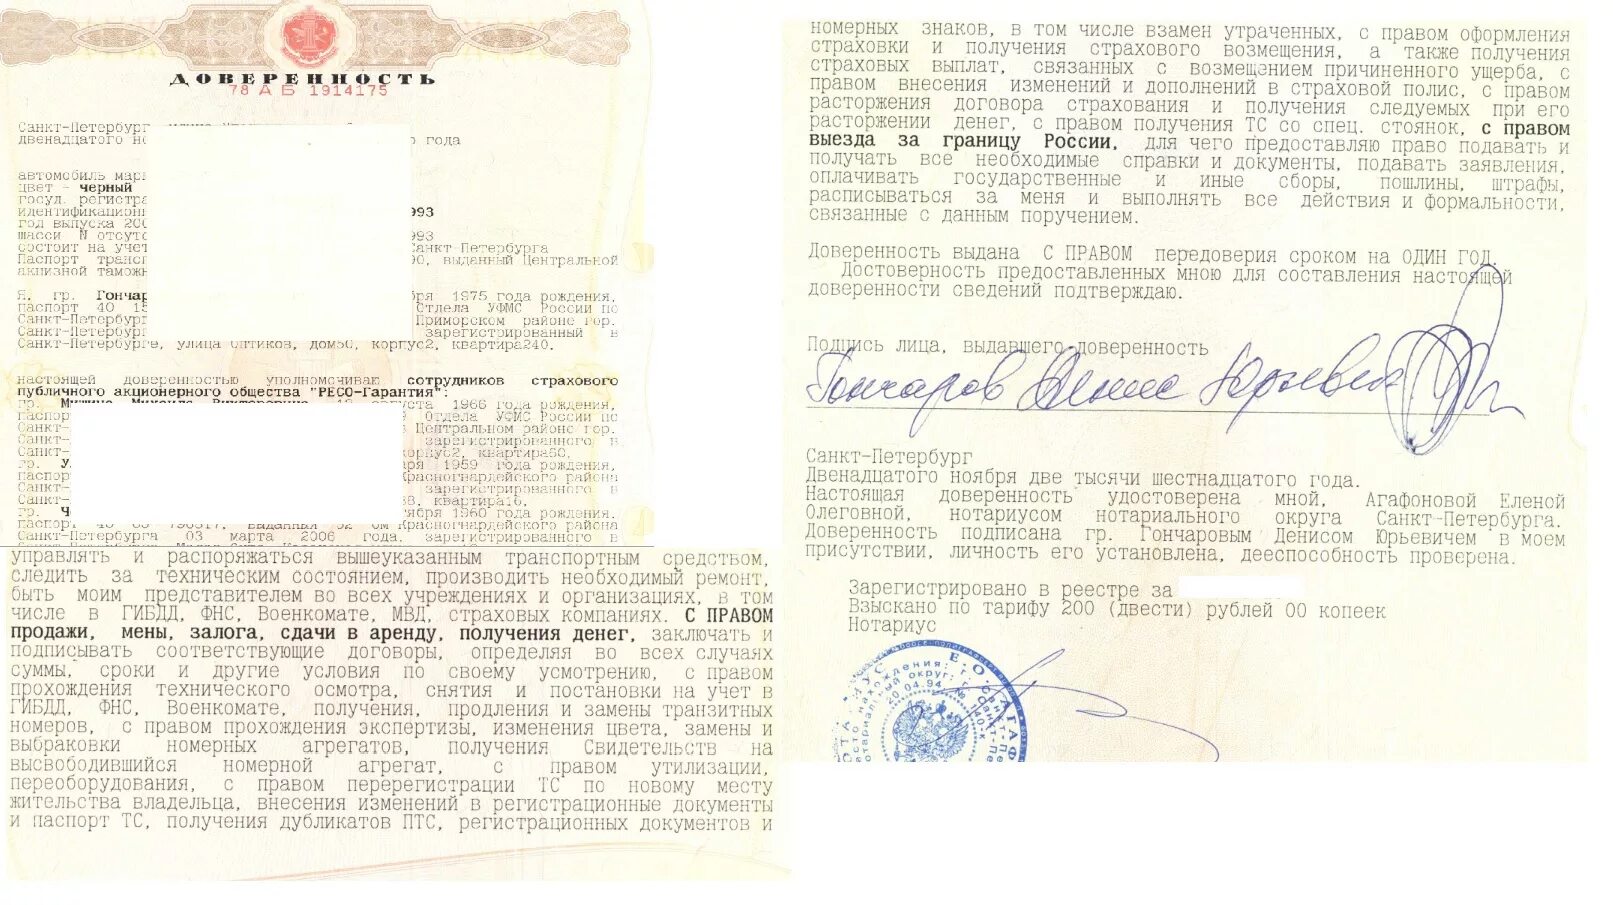 ДОВЕРЕННОСТЬ
78 А Б 1914175
Санкт-Петербург
двенадцатого года
автомобиль
цвет - черный
госуд. регистра
идентификацион 993
год выпуска 200
шасси N отсутс 993
состоит на учет Санкт-Петербурга
Паспорт трансп 90, выданный Центральной
акцизной таможн
Я, гр. Гончар бря 1975 года рождения,
паспорт 40 Отдела УФМС России по
Санкт-Петербург Приморском районе гор.
Санкт-Петербург зарегистрированный в
Санкт-Петербурге, улица Оптиков, дом50, корпус2, квартира240.
настоящей доверенностью уполномочиваю сотрудников страхового
публичного акционерного общества "РЕСО-Гарантия":
гр. августа 1966 года рождения,
паспор Отдела УФМС России по
Санкт- в Центральном районе гор.
Санкт- зарегистрированного в
Санкт- корпус2, квартира50.
гр. У ря 1959 года рождения,
паспор Красногвардейского района
Санкт- зарегистрированного в
Санкт- квартира16.
гр. Ч тября 1960 года рождения,
паспорт 40 03 выданный 52 ОМ Красногвардейского района
Санкт-Петербурга 03 марта 2006 года, зарегистрированного в
управлять и распоряжаться вышеуказанным транспортным средством,
следить за техническим состоянием, производить необходимый ремонт,
быть моим представителем во всех учреждениях и организациях, в том
числе в ГИБДД, ФНС, Военкомате, МВД, страховых компаниях. С ПРАВОМ
продажи, мены, залога, сдачи в аренду, получения денег, заключать и
подписывать соответствующие договоры, определяя во всех случаях
суммы, сроки и другие условия по своему усмотрению, с правом
прохождения технического осмотра, снятия и постановки на учет в
ГИБДД, ФНС, Военкомате, получения, продления и замены транзитных
номеров, с правом прохождения экспертизы, изменения цвета, замены и
выбраковки номерных агрегатов, получения Свидетельств на
высвободившийся номерной агрегат, с правом утилизации,
переоборудования, с правом перерегистрации ТС по новому месту
жительства владельца, внесения изменений в регистрационные документы
и паспорт ТС, получения дубликатов ПТС, регистрационных документов и
номерных знаков, в том числе взамен утраченных, с правом оформления
страховки и получения страхового возмещения, а также получения
страховых выплат, связанных с возмещением причиненного ущерба, с
правом внесения изменений и дополнений в страховой полис, с правом
расторжения договора страхования и получения следуемых при его
расторжении денег, с правом получения ТС со спец. стоянок, с правом
выезда за границу России, для чего предоставляю право подавать и
получать все необходимые справки и документы, подавать заявления,
оплачивать государственные и иные сборы, пошлины, штрафы,
расписываться за меня и выполнять все действия и формальности,
связанные с данным поручением.
Доверенность выдана С ПРАВОМ передоверия сроком на ОДИН ГОД.
Достоверность предоставленных мною для составления настоящей
доверенности сведений подтверждаю.
Подпись лица, выдавшего доверенность
Гончаров Денис Юрьевич
Санкт-Петербург
Двенадцатого ноября две тысячи шестнадцатого года.
Настоящая доверенность удостоверена мной, Агафоновой Еленой
Олеговной, нотариусом нотариального округа Санкт-Петербурга.
Доверенность подписана гр. Гончаровым Денисом Юрьевичем в моем
присутствии, личность его установлена, дееспособность проверена.
Зарегистрировано в реестре за
Взыскано по тарифу 200 (двести) рублей 00 копеек
Нотариус